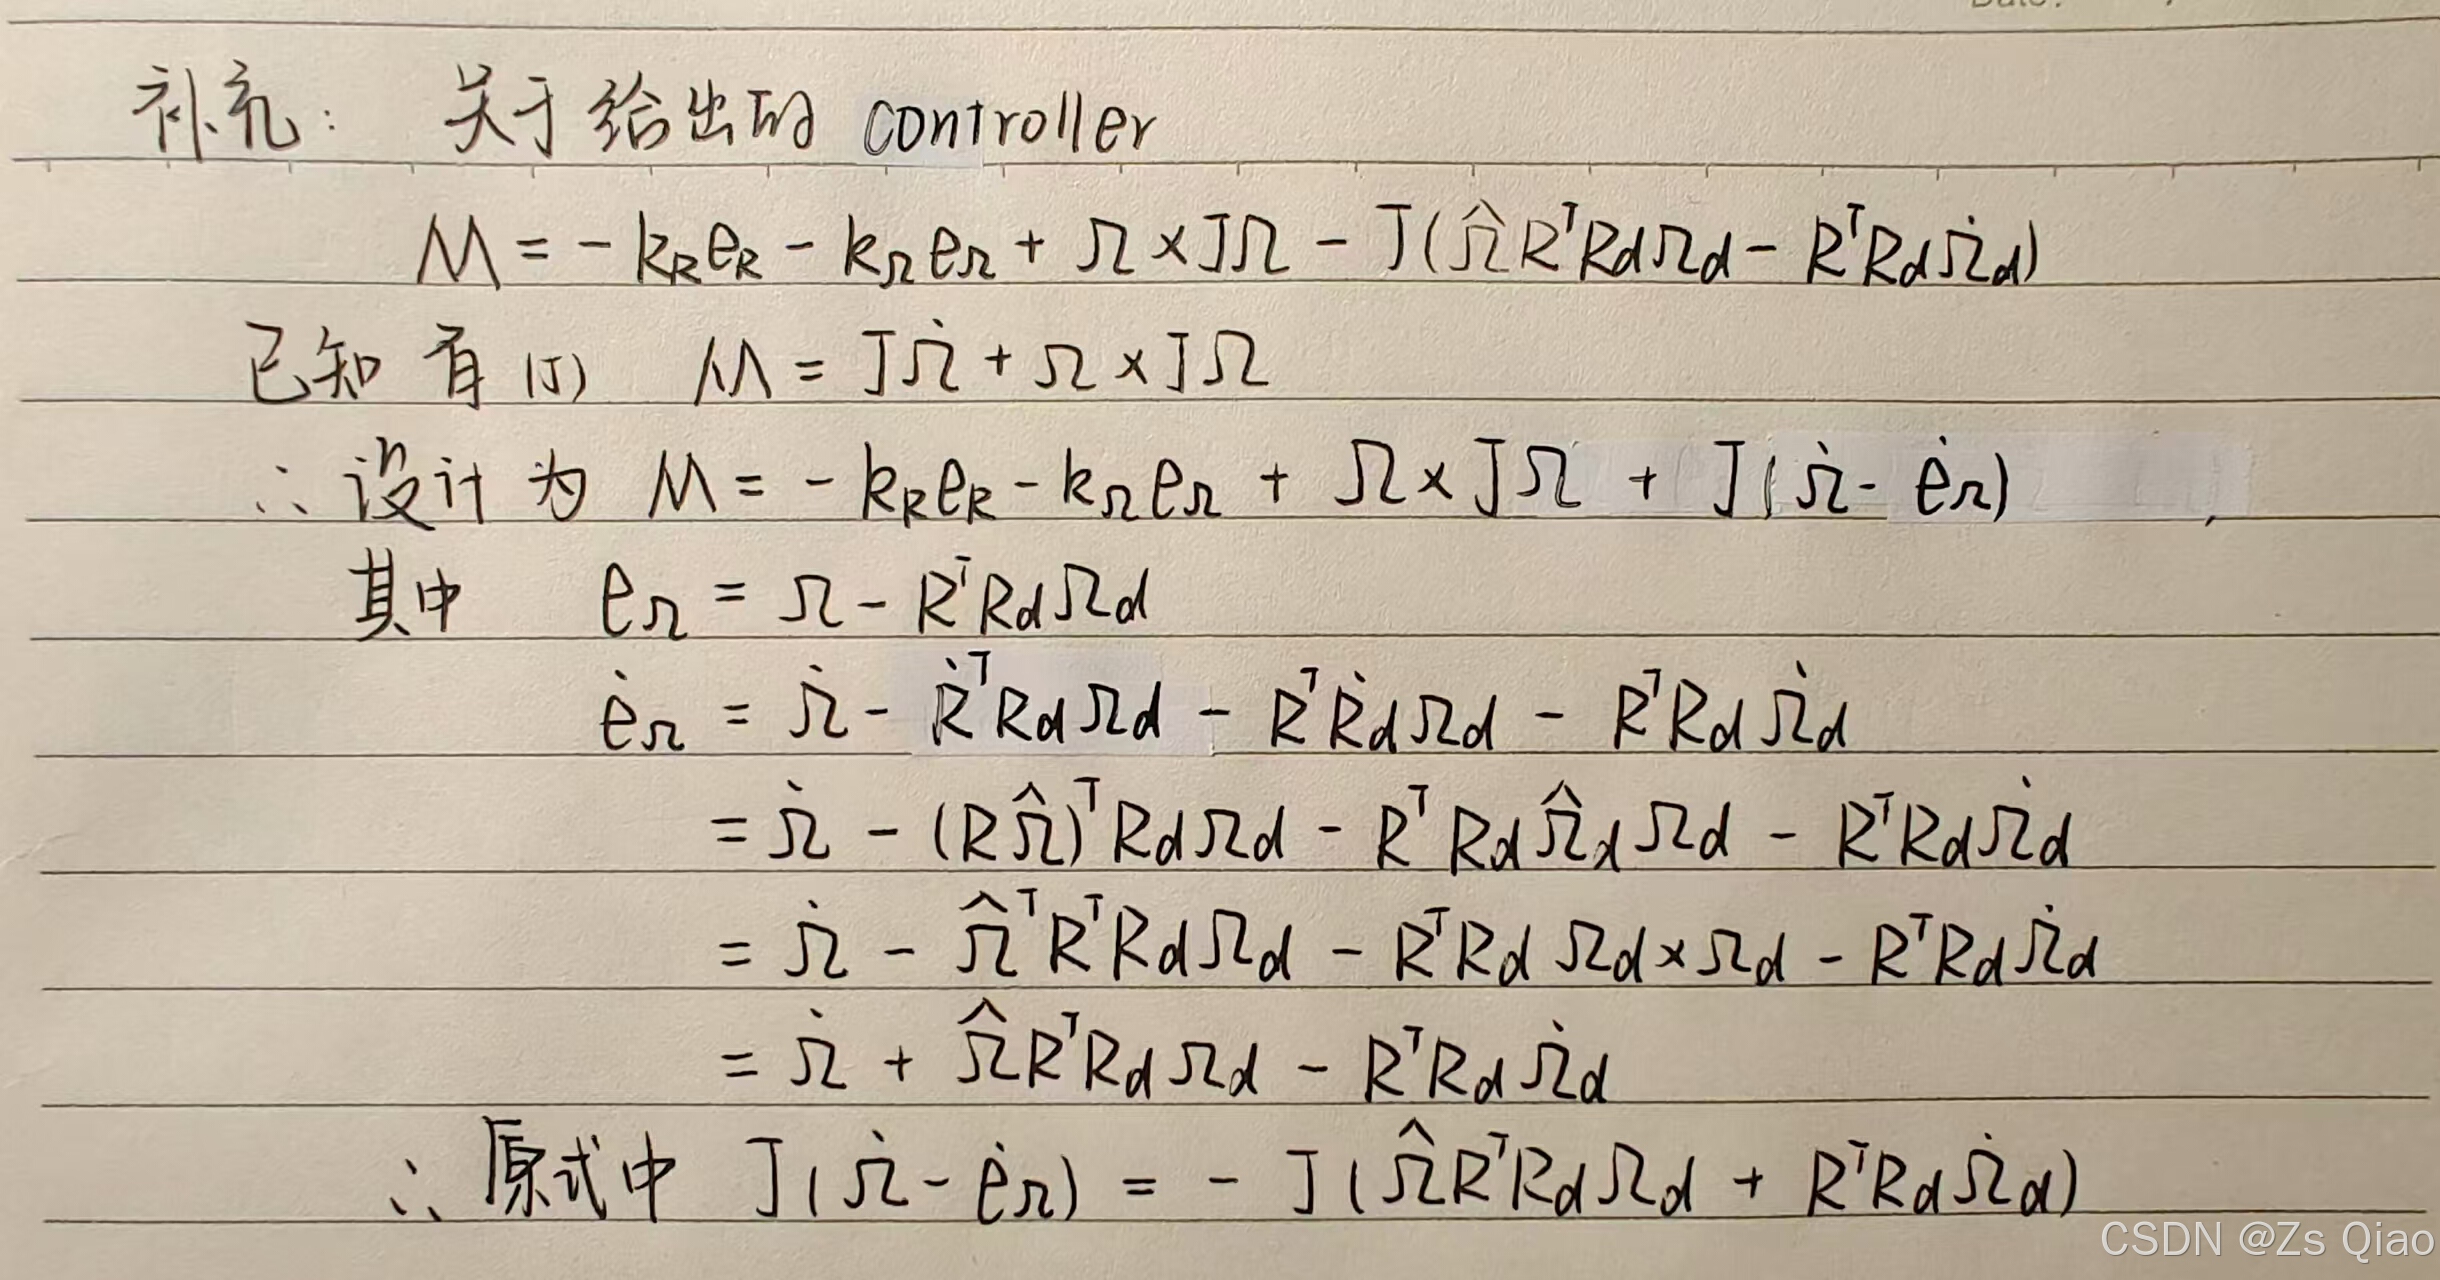 补充: 关于给出的 controller
M = - k_R e_R - k_Ω e_Ω + Ω × JΩ - J(Ω̂ R^T R_d Ω_d - R^T R_d Ω̇_d)
已知有(J) M = JΩ̇ + Ω × JΩ
∴ 设计为 M = - k_R e_R - k_Ω e_Ω + Ω × JΩ + J(Ω̇ - ė_Ω)
其中 e_Ω = Ω - R^T R_d Ω_d
ė_Ω = Ω̇ - Ṙ^T R_d Ω_d - R^T Ṙ_d Ω_d - R^T R_d Ω̇_d
= Ω̇ - (RΩ̂)^T R_d Ω_d - R^T R_d Ω̂_d Ω_d - R^T R_d Ω̇_d
= Ω̇ - Ω̂^T R^T R_d Ω_d - R^T R_d Ω_d × Ω_d - R^T R_d Ω̇_d
= Ω̇ + Ω̂ R^T R_d Ω_d - R^T R_d Ω̇_d
∴ 原式中 J(Ω̇ - ė_Ω) = - J(Ω̂ R^T R_d Ω_d + R^T R_d Ω̇_d)
CSDN @Zs Qiao